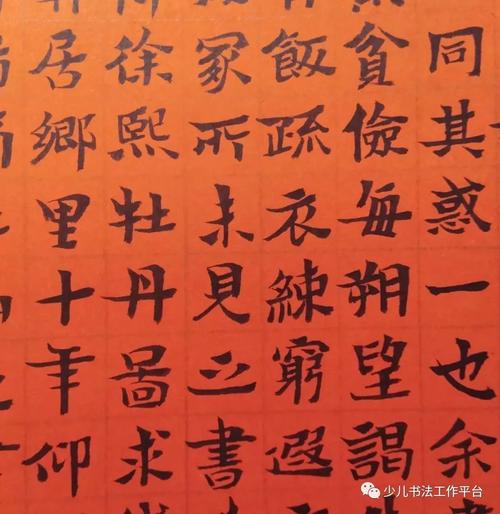 同其惑一也余
貧儉每朔望謁
飯疏衣練窮遐
冢所未見之書
徐熙牡丹啚求
居鄉里十年仰
少儿书法工作平台